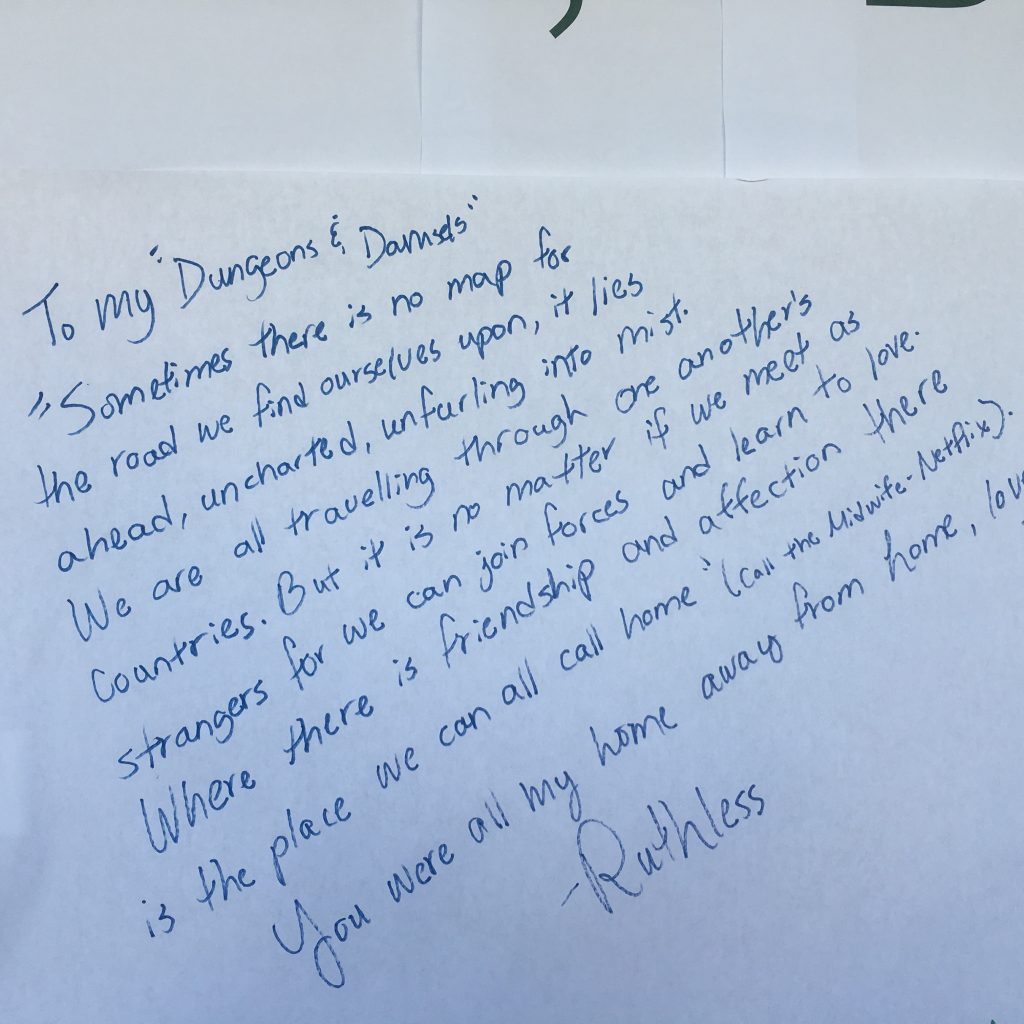 To my "Dungeons & Damsels"
"Sometimes there is no map for
the road we find ourselves upon, it lies
ahead, uncharted, unfurling into mist.
We are all travelling through one another's
Countries. But it is no matter if we meet as
strangers for we can join forces and learn to love.
Where there is friendship and affection there
is the place we can all call home" (Call the Midwife-Netflix).
You were all my home away from home,
-Ruthless